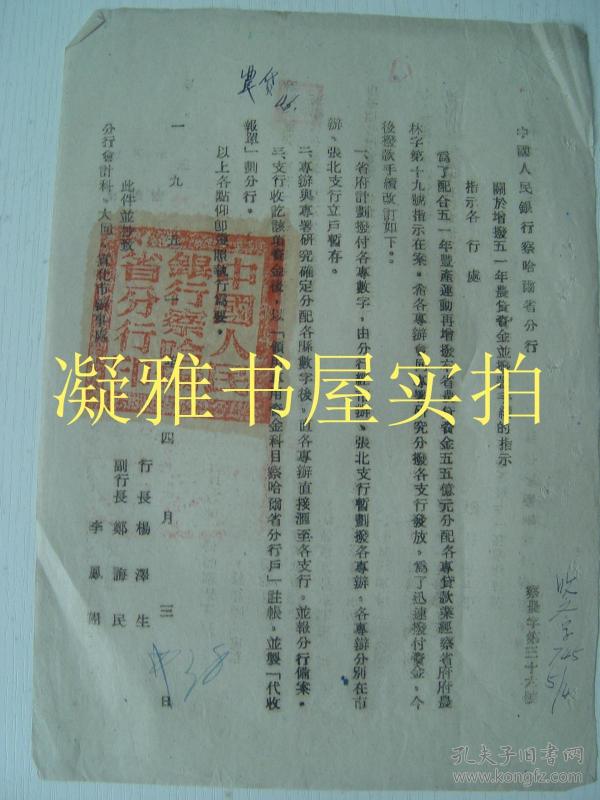 中國人民銀行察哈爾省分行
察農字第三十六號
關於增撥五一年農貸資金並
的指示
指示各行處
爲了配合五一年豐產運動再增撥
五五億元分配各專貸款業經察省府府農
林字第十九號指示在案。希各專辦會
研究分撥各支行發放。爲了迅速撥付資金。今
後撥款手續改訂如下。
一、省府計劃撥付各專數字，由分行
張北支行暫劃撥各專辦、各專辦分別在市
辦、張北支行立戶暫存。
二、專辦與專署研究確定分配各縣數字後，由各專辦直接滙至各支行。並報分行備案。
三、支行收訖該項資金後，以「
金科目察哈爾省分行戶」註帳。並製「代收
報單」劃分行。
以上各點仰即遵照執行爲要。
行長楊澤生
副行長鄭誨民
李鳳
一九五
四月三日
此件並抄致
分行會計科。大同、宣化市
農貸
中國人民
銀行察哈爾
省分行印
凝雅书屋实拍
孔夫子旧书网
www.kongfz.com